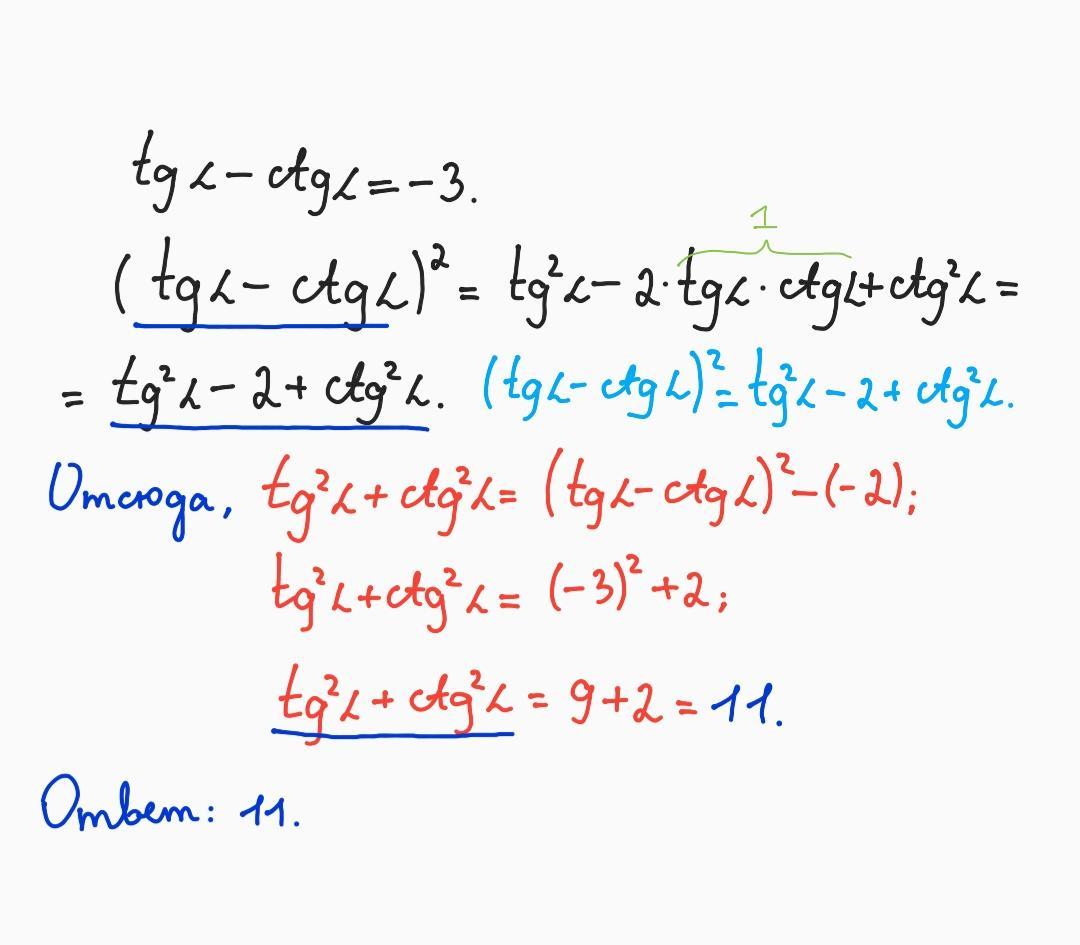 tg α – ctg α = –3.
1
(tg α – ctg α)² = tg² α – 2 · tg α · ctg α + ctg² α =
= tg² α – 2 + ctg² α. (tg α – ctg α)² = tg² α – 2 + ctg² α.
Отсюда, tg² α + ctg² α = (tg α – ctg α)² – (–2);
tg² α + ctg² α = (–3)² + 2;
tg² α + ctg² α = 9 + 2 = 11.
Ответ: 11.